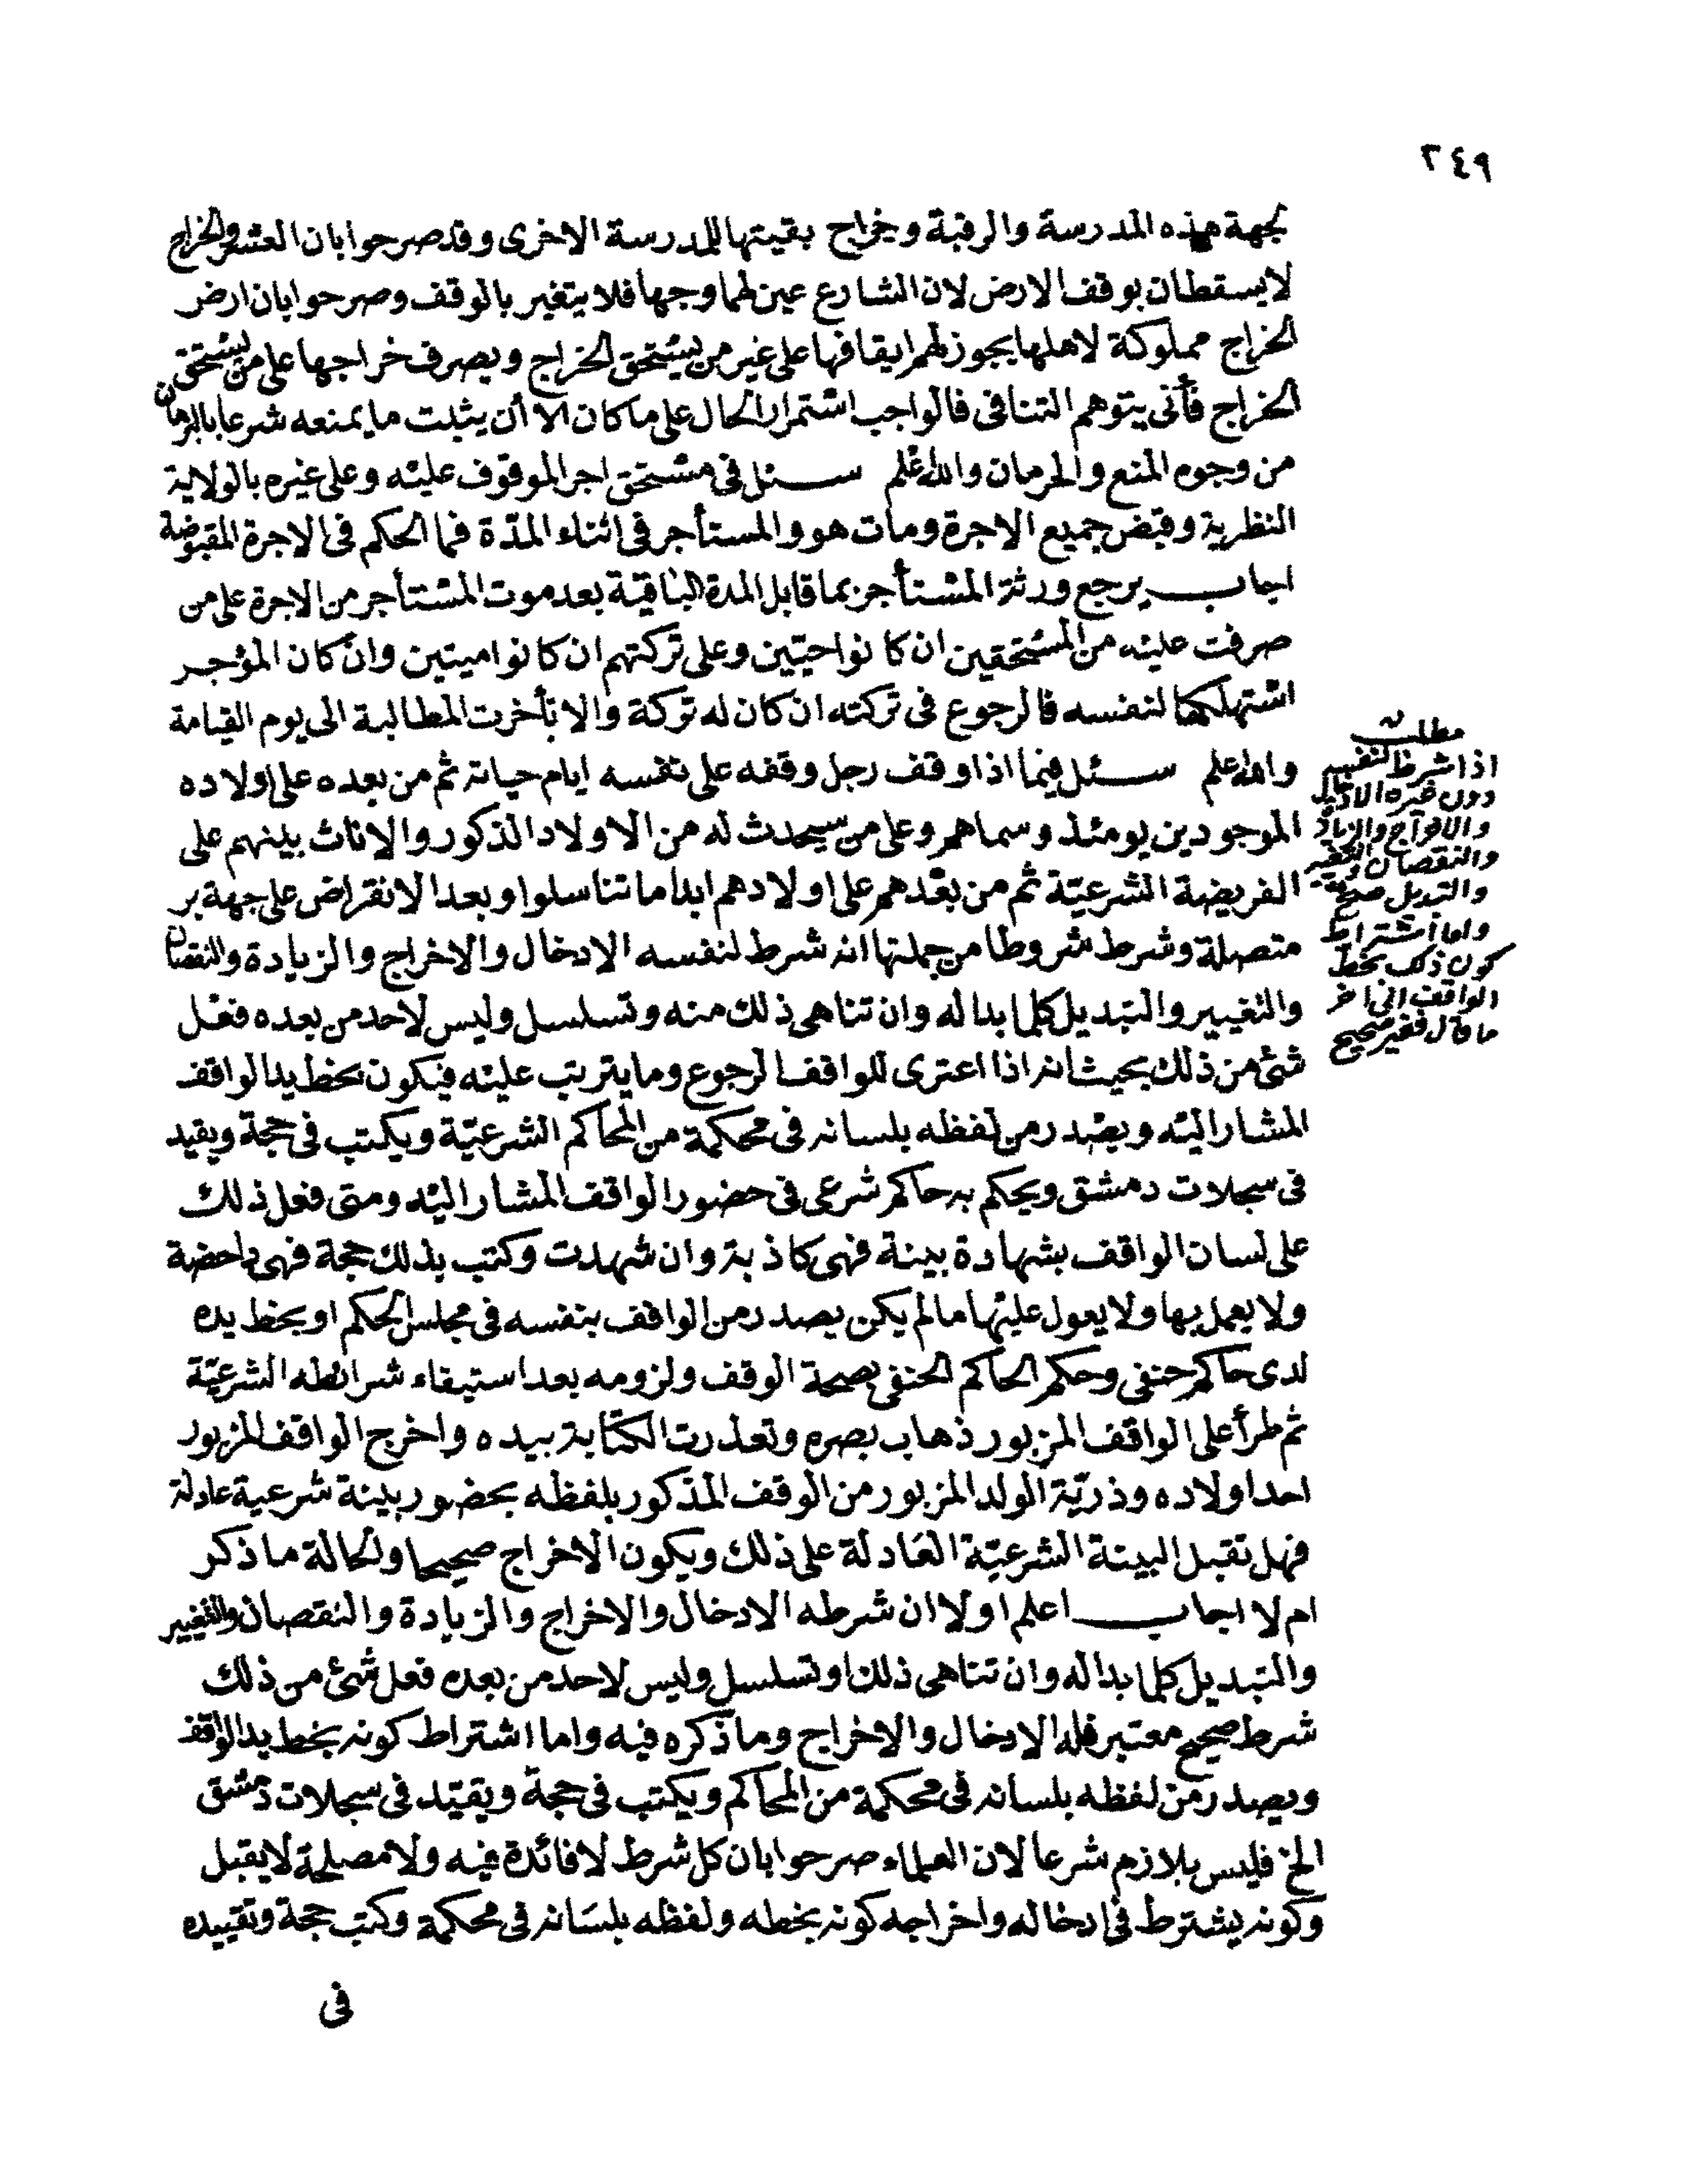 ٢٤٩
لجهة هذه المدرسة والرقبة وخراج بقيتها للمدرسة الاخرى وقد صرحوا بان العشر والخراج
لا يسقطان بوقف الارض لان الشارع عين لهما وجها فلا يتغير بالوقف وصرحوا بان ارض
الخراج مملوكة لاهلها يجوز لهم ايقافها على غير من يستحق الخراج ويصرف خراجها على من يستحق
الخراج فأنى يتوهم التنافى فالواجب استمرار الحال على ما كان الا أن يثبت ما يمنعه شرعا بالبرهان
من وجوه المنع والحرمان والله اعلم سئل فى مستحق اجر الموقوف عليه وعلى غيره بالولاية
النظرية وقبض جميع الاجرة ومات هو والمستأجر فى اثناء المدّة فما الحكم فى الاجرة المقبوضة
اجاب يرجع ورثة المستأجر بما قابل المدة الباقية بعد موت المستأجر من الاجرة على من
صرفت عليه من المستحقين ان كانوا حيّين وعلى تركتهم ان كانوا ميتين وان كان المؤجر
استهلكها لنفسه فالرجوع فى تركته ان كان له تركة والا تأخرت المطالبة الى يوم القيامة
والله اعلم سئل فيما اذا وقف رجل وقفه على نفسه ايام حياته ثم من بعده على اولاده
الموجودين يومئذ وسماهم وعلى من سيحدث له من الاولاد الذكور والاناث بينهم على
الفريضة الشرعيّة ثم من بعدهم على اولادهم ابدا ما تناسلوا وبعد الانقراض على جهة بر
متصلة وشرط شروطا من جملتها انه شرط لنفسه الادخال والاخراج والزيادة والنقصان
والتغيير والتبديل كلما بدا له وان تناهى ذلك منه وتسلسل وليس لاحد من بعده فعل
شئ من ذلك بحيث انه اذا اعترى للواقف الرجوع وما يترتب عليه فيكون بخط يد الواقف
المشار اليه ويصدر من لفظه بلسانه فى محكمة من المحاكم الشرعيّة ويكتب فى حجة ويقيد
فى سجلات دمشق ويحكم به حاكم شرعى فى حضور الواقف المشار اليه ومتى فعل ذلك
على لسان الواقف بشهادة بينة فهى كاذبة وان شهدت وكتب بذلك حجة فهى داحضة
ولا يعمل بها ولا يعول عليها ما لم يكن يصدر من الواقف بنفسه فى مجلس الحكم او بخط يده
لدى حاكم حنفى وحكم الحاكم الحنفى بصحة الوقف ولزومه بعد استيفاء شرائطه الشرعيّة
ثم طرأ على الواقف المزبور ذهاب بصره وتعذرت الكتابة بيده واخرج الواقف المزبور
احد اولاده وذريّة الولد المزبور من الوقف المذكور بلفظه بحضور بينة شرعية عادلة
فهل تقبل البينة الشرعيّة العادلة على ذلك ويكون الاخراج صحيحا والحالة ما ذكر
ام لا اجاب اعلم اولا ان شرطه الادخال والاخراج والزيادة والنقصان والتغيير
والتبديل كلما بدا له وان تناهى ذلك او تسلسل وليس لاحد من بعده فعل شئ من ذلك
شرط صحيح معتبر فله الادخال والاخراج وما ذكره فيه واما اشتراط كونه بخط يد الواقف
ويصدر من لفظه بلسانه فى محكمة من المحاكم ويكتب فى حجة ويقيّد فى سجلات دمشق
الخ فليس بلازم شرعا لان العلماء صرحوا بان كل شرط لا فائدة فيه ولا مصلحة لا يقبل
وكونه يشترط فى ادخاله واخراجه كونه بخطه ولفظه بلسانه فى محكمة وكتب حجة وتقييده
فى
مطلب
اذا شرط لنفسه
دون غيره الادخال
والاخراج والزيادة
والنقصان والتغيير
والتبديل صح
واما اشتراط
كون ذلك بخط
الواقف الى اخر
ما قال فغير صحيح